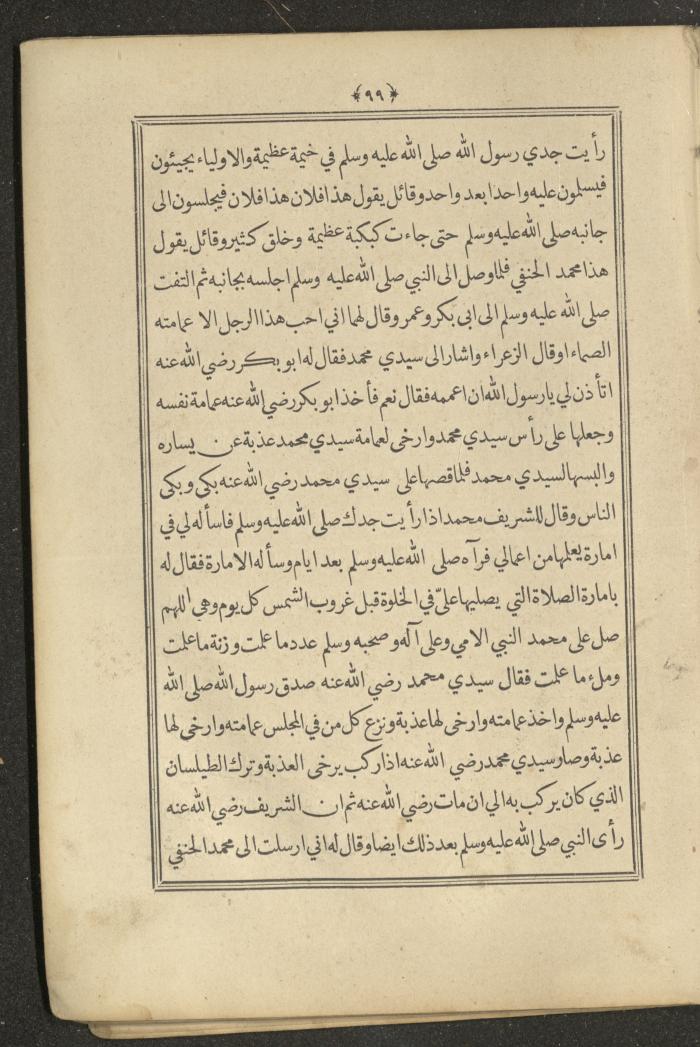 ﴿٩٩﴾
رأيت جدي رسول الله صلى الله عليه وسلم في خيمة عظيمة والاولياء يجيئون
فيسلمون عليه واحدا بعد واحد وقائل يقول هذا فلان هذا فلان فيجلسون الى
جانبه صلى الله عليه وسلم حتى جاءت كبكبة عظيمة وخلق كثير وقائل يقول
هذا محمد الحنفي فلما وصل الى النبي صلى الله عليه وسلم اجلسه بجانبه ثم التفت
صلى الله عليه وسلم الى ابى بكر وعمر وقال لهما اني احب هذا الرجل الا عمامته
الصماء اوقال الزعراء واشار الى سيدي محمد فقال له ابو بكر رضي الله عنه
اتأذن لي يارسول الله ان اعممه فقال نعم فأخذ ابو بكر رضي الله عنه عمامة نفسه
وجعلها على رأس سيدي محمد وارخى لعمامة سيدي محمد عذبة عن يساره
والبسها لسيدي محمد فلما قصها على سيدي محمد رضي الله عنه بكى وبكى
الناس وقال للشريف محمد اذا رأيت جدك صلى الله عليه وسلم فاسأله لي في
امارة يعلمها من اعمالي فرآه صلى الله عليه وسلم بعد ايام وسأله الامارة فقال له
بامارة الصلاة التي يصليها عليّ في الخلوة قبل غروب الشمس كل يوم وهي اللهم
صل على محمد النبي الامي وعلى آله وصحبه وسلم عدد ما علمت وزنة ما علمت
وملء ما علمت فقال سيدي محمد رضي الله عنه صدق رسول الله صلى الله
عليه وسلم واخذ عمامته وارخى لها عذبة ونزع كل من في المجلس عمامته وارخى لها
عذبة وصار سيدي محمد رضي الله عنه اذا ركب يرخى العذبة وترك الطيلسان
الذي كان يركب به الي ان مات رضي الله عنه ثم ان الشريف رضي الله عنه
رأى النبي صلى الله عليه وسلم بعد ذلك ايضا وقال له اني ارسلت الى محمد الحنفي